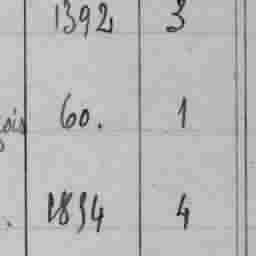 1392 3
60. 1
1834 4